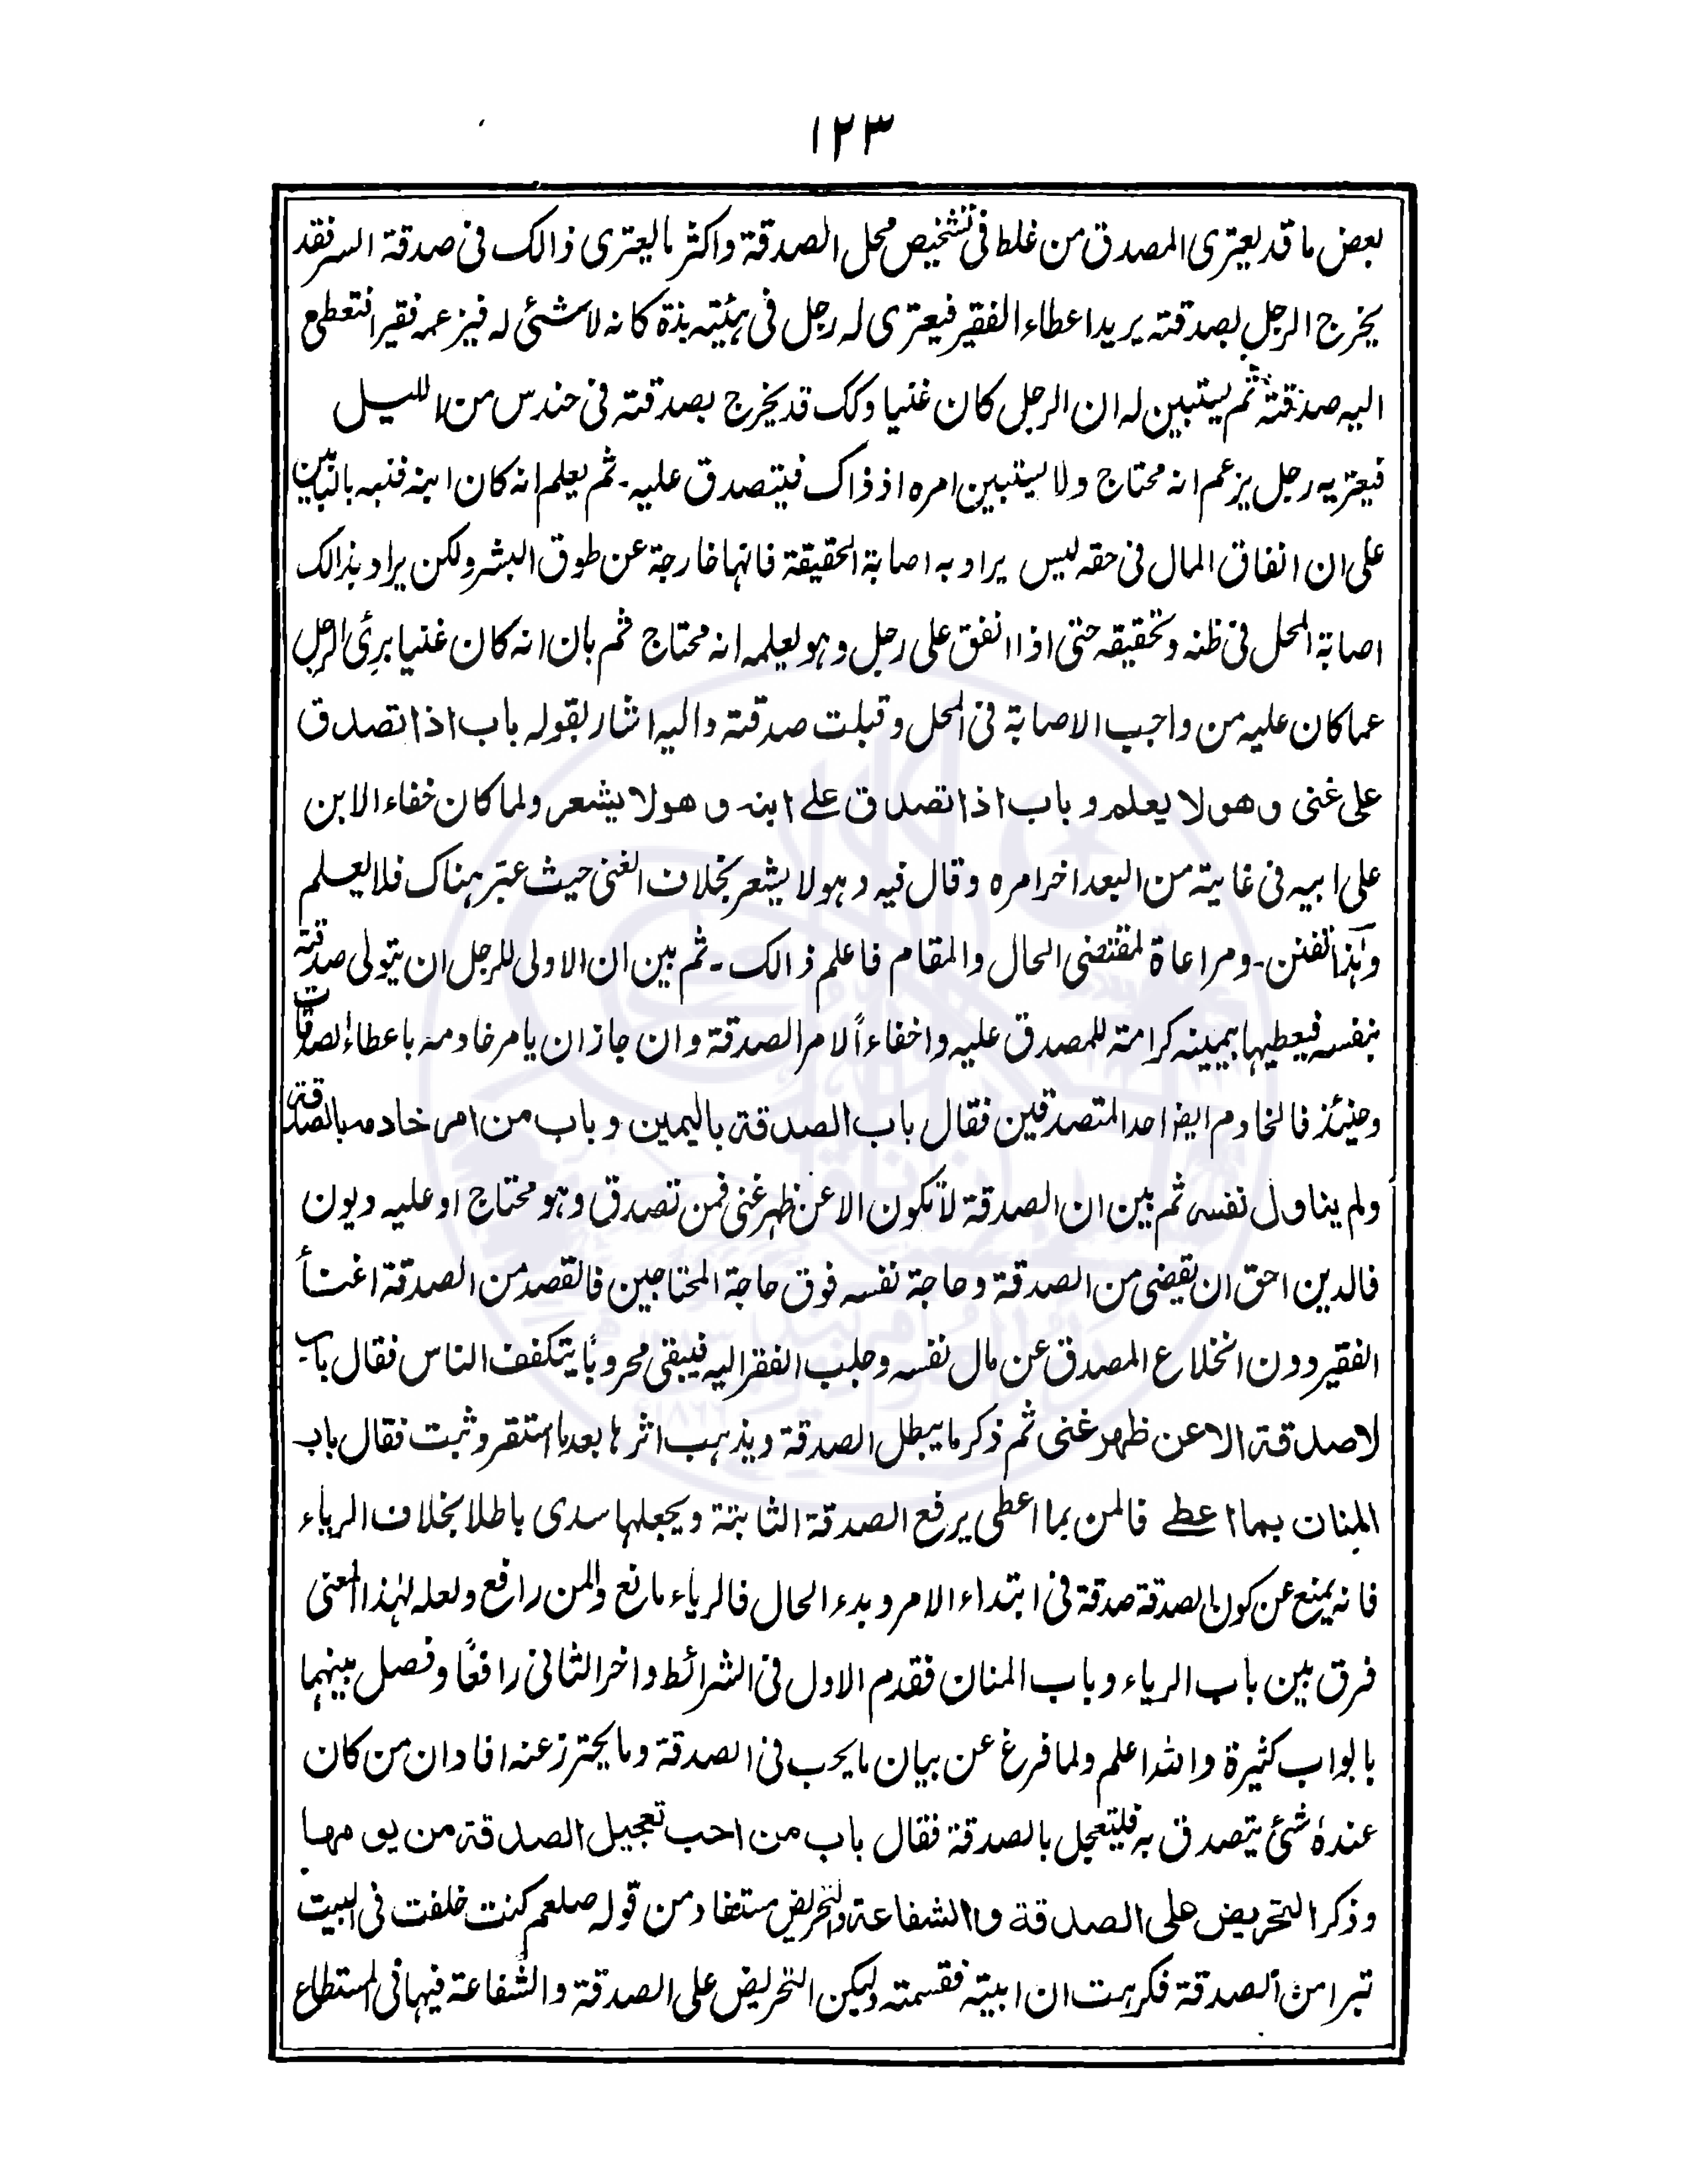 ١٢٣
بعض ما قد يعترى المصدق من غلط فى تشخيص محل الصدقة واكثر ما يعترى ذالك فى صدقة السر فقد
يخرج الرجل بصدقته يريد اعطاء الفقير فيعترى له رجل فى هيئته بذة كانه لا شئى له فيزعمه فقيرا فتعطى ع
اليه صدقته ثم يتبين له ان الرجل كان غنيا وكك قد يخرج بصدقته فى حندس من الليل
فيعتريه رجل يزعم انه محتاج ولا يتبين امره اذ ذاك فيتصدق عليه۔ ثم يعلم انه كان ابنه فنبه بالبابين
على ان انفاق المال فى حقه ليس يراد به اصابة الحقيقة فانها خارجة عن طوق البشر ولكن يراد بذالك
اصابة المحل فى ظنه وتحقيقه حتى اذا انفق على رجل وهو يعلمه انه محتاج ثم بان انه كان غنيا برئ الرجل
عما كان عليه من واجب الاصابة فى المحل وقبلت صدقته واليه اشار بقوله باب اذا تصدق
على غنى وهو لا يعلم وباب اذا تصدق على ابنه وهو لا يشعر ولما كان خفاء الابن
على ابيه فى غاية من البعد اخر امره وقال فيه وهو لا يشعر بخلاف الغنى حيث عبّر هناك فلا يعلم
وهٰذا تفنن۔ ومراعاة لمقتضى الحال والمقام فاعلم ذالك۔ ثم بين ان الاولى للرجل ان يتولى صدقته
بنفسه فيعطيها بيمينه كرامة للمصدق عليه واخفاءاً لامر الصدقة وان جاز ان يامر خادمه باعطاء الصدقات
وحينئذ فالخادم ايضا احد المتصدقين فقال باب الصدقة باليمين وباب من امر خادمه بالصدقة
ولم يناول نفسه ثم بين ان الصدقة لا تكون الا عن ظهر غنى فمن تصدق وهو محتاج او عليه ديون
فالدين احق ان يقضى من الصدقة وحاجة نفسه فوق حاجة المحتاجين فالقصد من الصدقة اغناأ
الفقير دون انخلاع المصدق عن مال نفسه وجلب الفقر اليه فيبقى محروباً يتكفف الناس فقال باب
لا صدقة الا عن ظهر غنى ثم ذكر ما يبطل الصدقة ويذهب اثرها بعد ما استقر وثبت فقال باب
المنان بما اعطى فالمن بما اعطى يرفع الصدقة الثابتة ويجعلها سدى باطلا بخلاف الرياء
فانه يمنع عن كون الصدقة صدقة فى ابتداء الامر وبدء الحال فالرياء مانع والمن رافع ولعله لهٰذا المعنى
فرق بين باب الرياء وباب المنان فقدم الاول فى الشرائط واخر الثانى رافعاً وفصل بينهما
بابواب كثيرة والله اعلم ولما فرغ عن بيان ما يجب فى الصدقة وما يحترز عنه افاد ان من كان
عندهٗ شئ يتصدق به فليتعجل بالصدقة فقال باب من احب تعجيل الصدقة من يومها
وذكر التحريض على الصدقة والشفاعة والتحريض مستفاد من قوله صلعم كنت خلفت فى البيت
تبرا من الصدقة فكرهت ان ابيته فقسمته وليكن التحريض على الصدقة والشفاعة فيها فى المستطاع